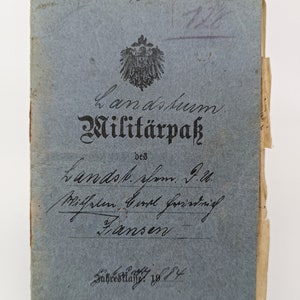 128
Landsturm
Militärpaß
des
Landst.
Wilhelm Carl Friedrich
Jansen
Jahresklasse: 1884